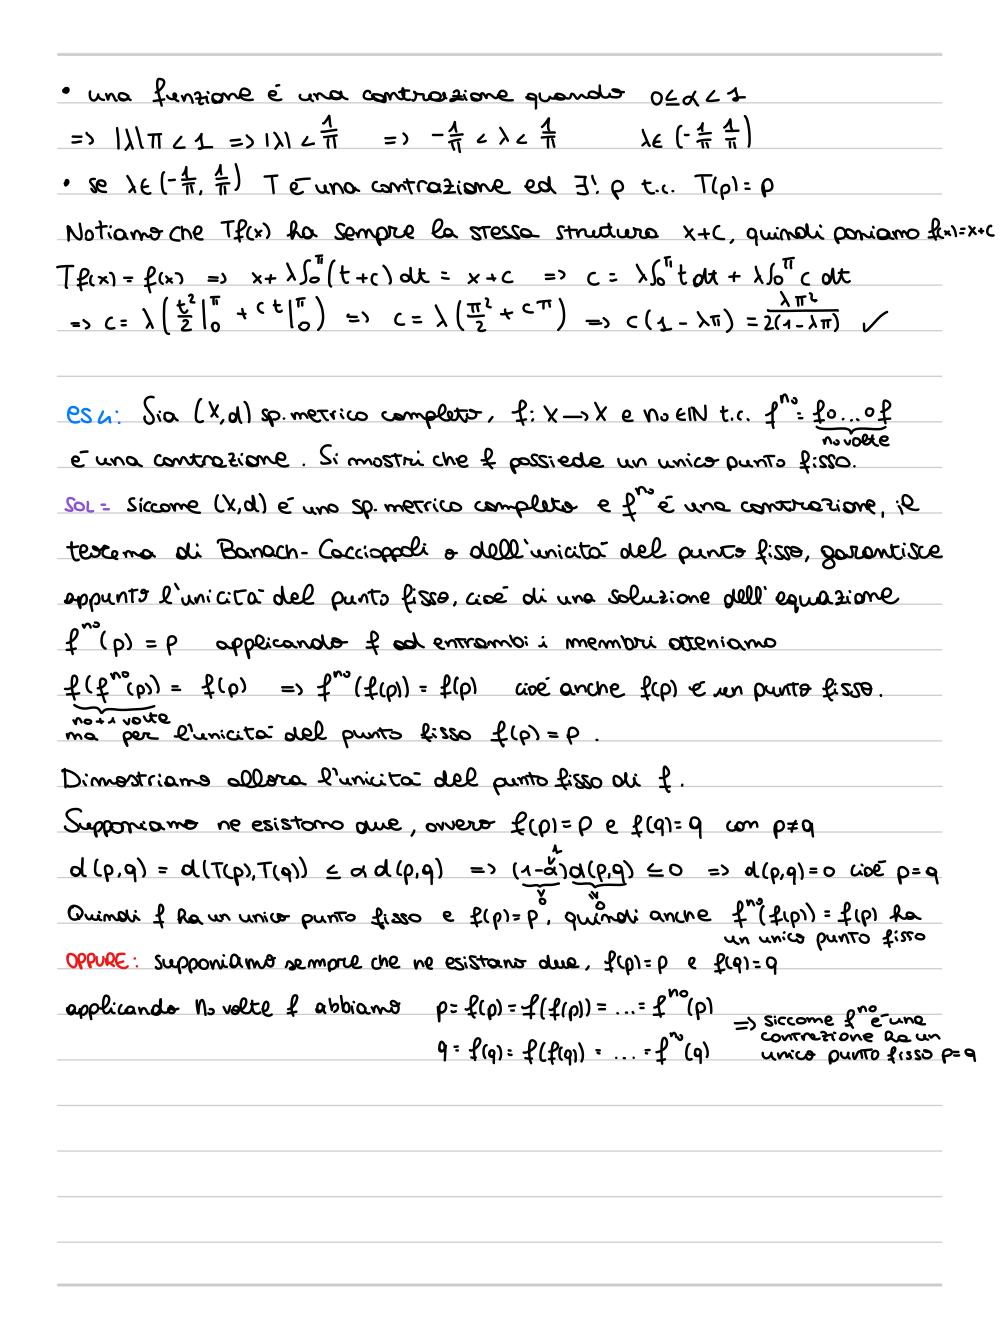 • una funzione è una contrazione quando 0≤α<1
=> |λ|π < 1 => |λ| < 1/π => -1/π < λ < 1/π λ∈(-1/π 1/π)
• se λ∈(-1/π, 1/π) T è una contrazione ed ∃! p t.c. T(p)=p
Notiamo che Tf(x) ha sempre la stessa struttura x+c, quindi poniamo f(x)=x+c
Tf(x) = f(x) => x+λ∫₀^π(t+c) dt = x+c => c = λ∫₀^π t dt + λ∫₀^π c dt
=> c = λ(t²/2|₀^π + ct|₀^π) => c = λ(π²/2 + cπ) => c(1-λπ) = λπ²/2(1-λπ) ✓
es 4: Sia (X,d) sp. metrico completo, f: X→X e n₀∈IN t.c. f^n₀ = f∘...∘f
n₀ volte
è una contrazione. Si mostri che f possiede un unico punto fisso.
SOL = Siccome (X,d) è uno sp. metrico completo e f^n₀ è una contrazione, il
teorema di Banach-Caccioppoli o dell'unicità del punto fisso, garantisce
appunto l'unicità del punto fisso, cioè di una soluzione dell'equazione
f^n₀(p) = p applicando f ad entrambi i membri otteniamo
f(f^n₀(p)) = f(p) => f^n₀(f(p)) = f(p) cioè anche f(p) è un punto fisso.
n₀+1 volte
ma per l'unicità del punto fisso f(p)=p.
Dimostriamo allora l'unicità del punto fisso di f.
Supponiamo ne esistono due, ovvero f(p)=p e f(q)=q con p≠q
d(p,q) = d(T(p),T(q)) ≤ α d(p,q) => (1-α)d(p,q) ≤ 0 => d(p,q)=0 cioè p=q
Quindi f ha un unico punto fisso e f(p)=p, quindi anche f^n₀(f(p)) = f(p) ha
un unico punto fisso
OPPURE: supponiamo sempre che ne esistano due, f(p)=p e f(q)=q
applicando n₀ volte f abbiamo p = f(p) = f(f(p)) = ... = f^n₀(p)
q = f(q) = f(f(q)) = ... = f^n₀(q)
=> siccome f^n₀ è una
contrazione ha un
unico punto fisso p=q